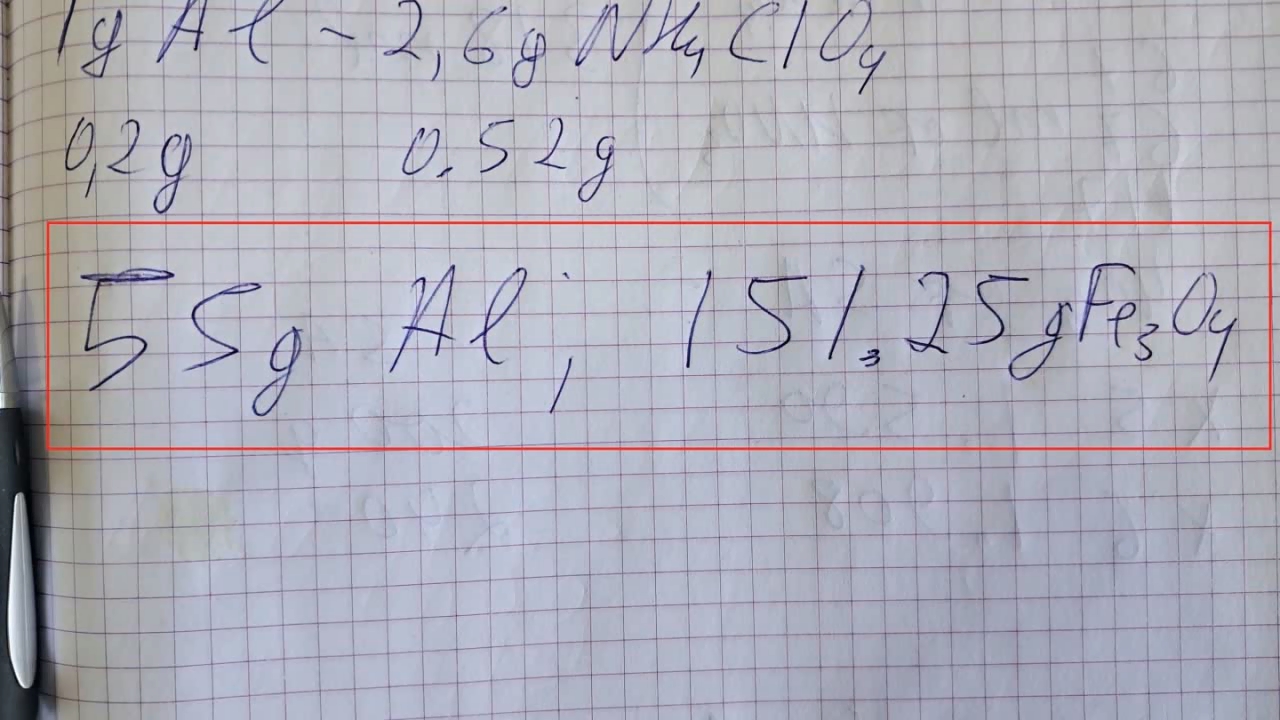 1g Al - 2,6g NH4ClO4
0,2g 0.52g
55g Al; 151.25g Fe3O4